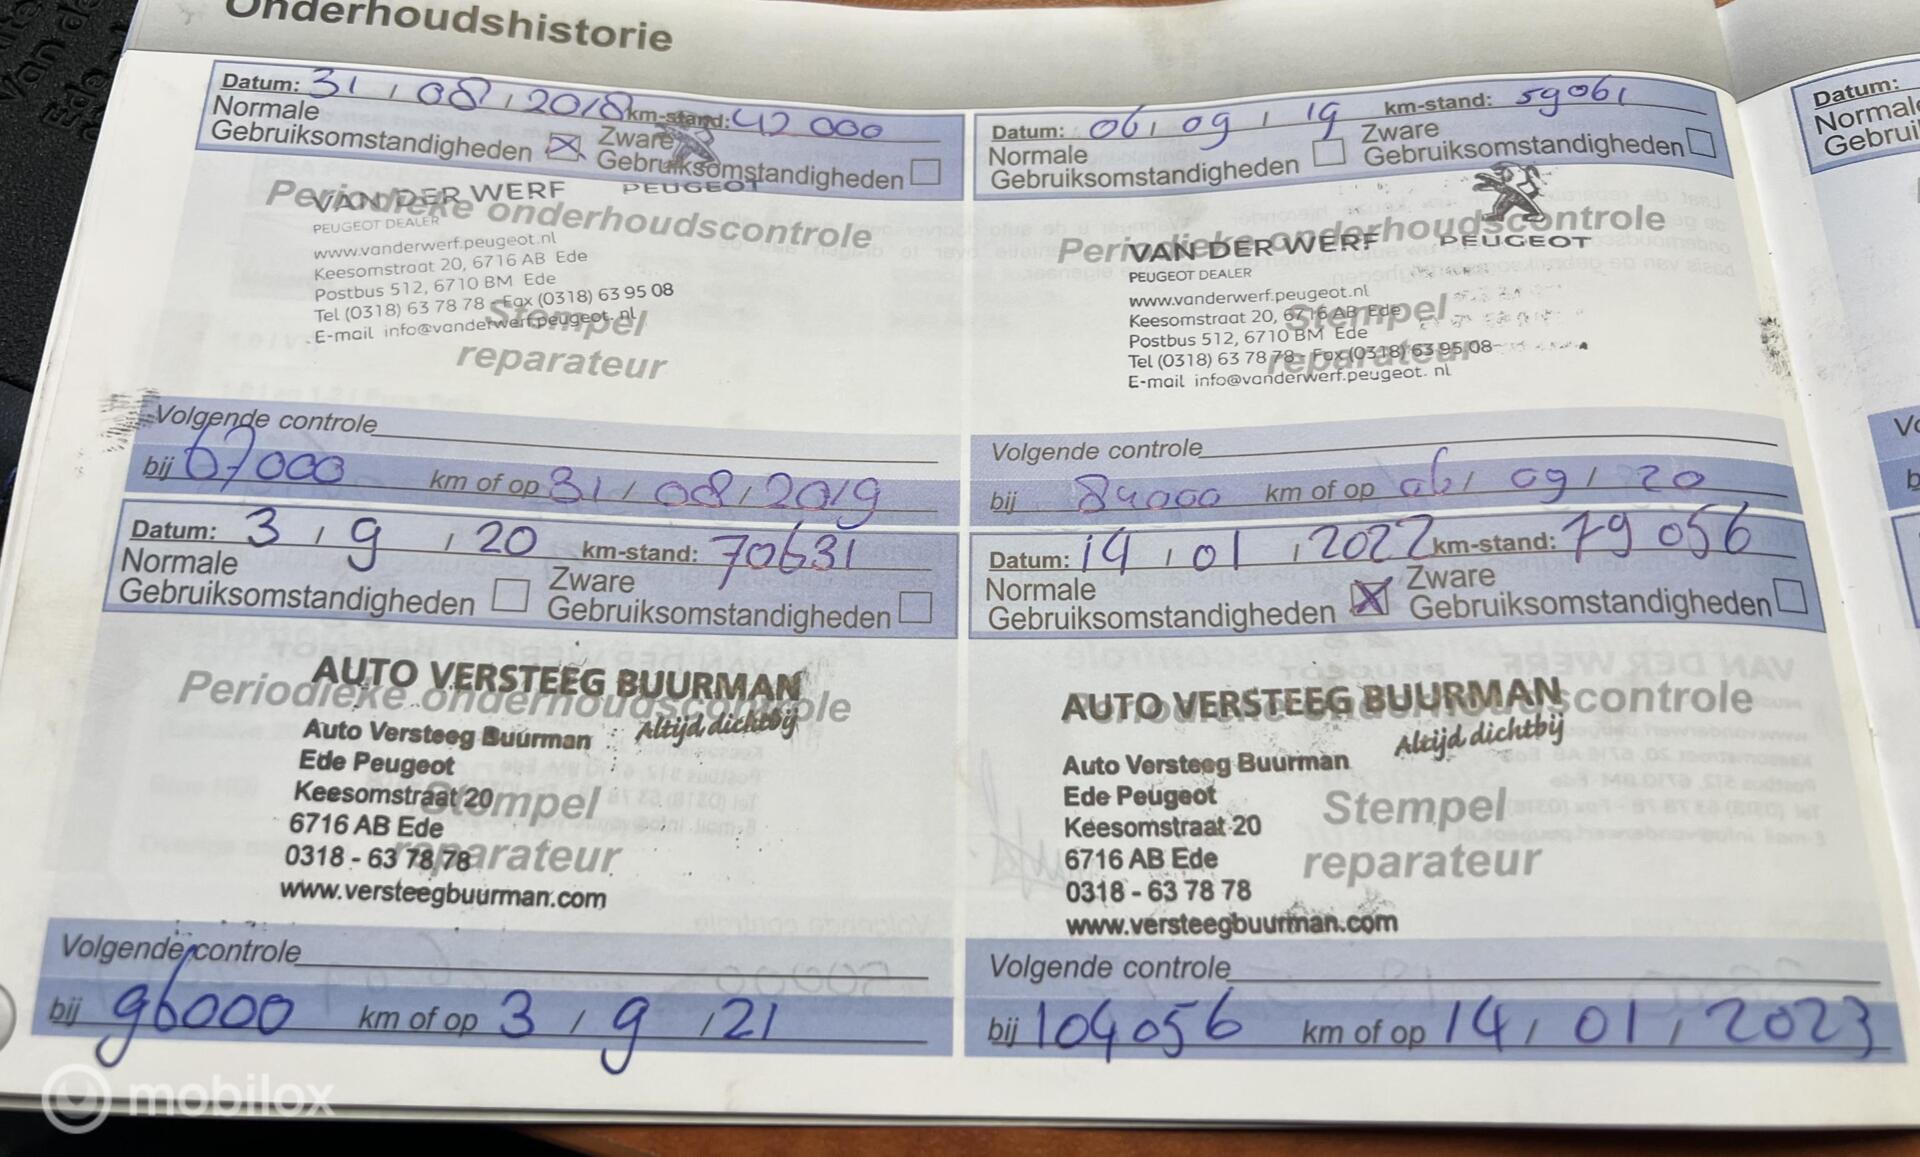 Onderhoudshistorie
Datum: 31 / 08 / 2018 km-stand: 42 000
Normale Gebruiksomstandigheden
Zware Gebruiksomstandigheden
Periodieke onderhoudscontrole
VAN DER WERF PEUGEOT
PEUGEOT DEALER
www.vanderwerf.peugeot.nl
Keesomstraat 20, 6716 AB Ede
Postbus 512, 6710 BM Ede
Tel (0318) 63 78 78 - Fax (0318) 63 95 08
E-mail info@vanderwerf.peugeot. nl
Stempel
reparateur
Volgende controle
bij 67000 km of op 31 / 08 / 2019
Datum: 06 / 09 / 19 km-stand: 59061
Normale Gebruiksomstandigheden
Zware Gebruiksomstandigheden
Periodieke onderhoudscontrole
VAN DER WERF PEUGEOT
PEUGEOT DEALER
www.vanderwerf.peugeot.nl
Keesomstraat 20, 6716 AB Ede
Postbus 512, 6710 BM Ede
Tel (0318) 63 78 78 - Fax (0318) 63 95 08
E-mail info@vanderwerf.peugeot. nl
Stempel
reparateur
Volgende controle
bij 84000 km of op 06 / 09 / 20
Datum: 3 / 9 / 20 km-stand: 70631
Normale Gebruiksomstandigheden
Zware Gebruiksomstandigheden
Periodieke onderhoudscontrole
AUTO VERSTEEG BUURMAN
Altijd dichtbij
Auto Versteeg Buurman
Ede Peugeot
Keesomstraat 20
6716 AB Ede
0318 - 63 78 78
www.versteegbuurman.com
Stempel
reparateur
Volgende controle
bij 96000 km of op 3 / 9 / 21
Datum: 14 / 01 / 2022 km-stand: 79 056
Normale Gebruiksomstandigheden
Zware Gebruiksomstandigheden
Periodieke onderhoudscontrole
AUTO VERSTEEG BUURMAN
Altijd dichtbij
Auto Versteeg Buurman
Ede Peugeot
Keesomstraat 20
6716 AB Ede
0318 - 63 78 78
www.versteegbuurman.com
Stempel
reparateur
Volgende controle
bij 104056 km of op 14 / 01 / 2023
Datum:
mobilox